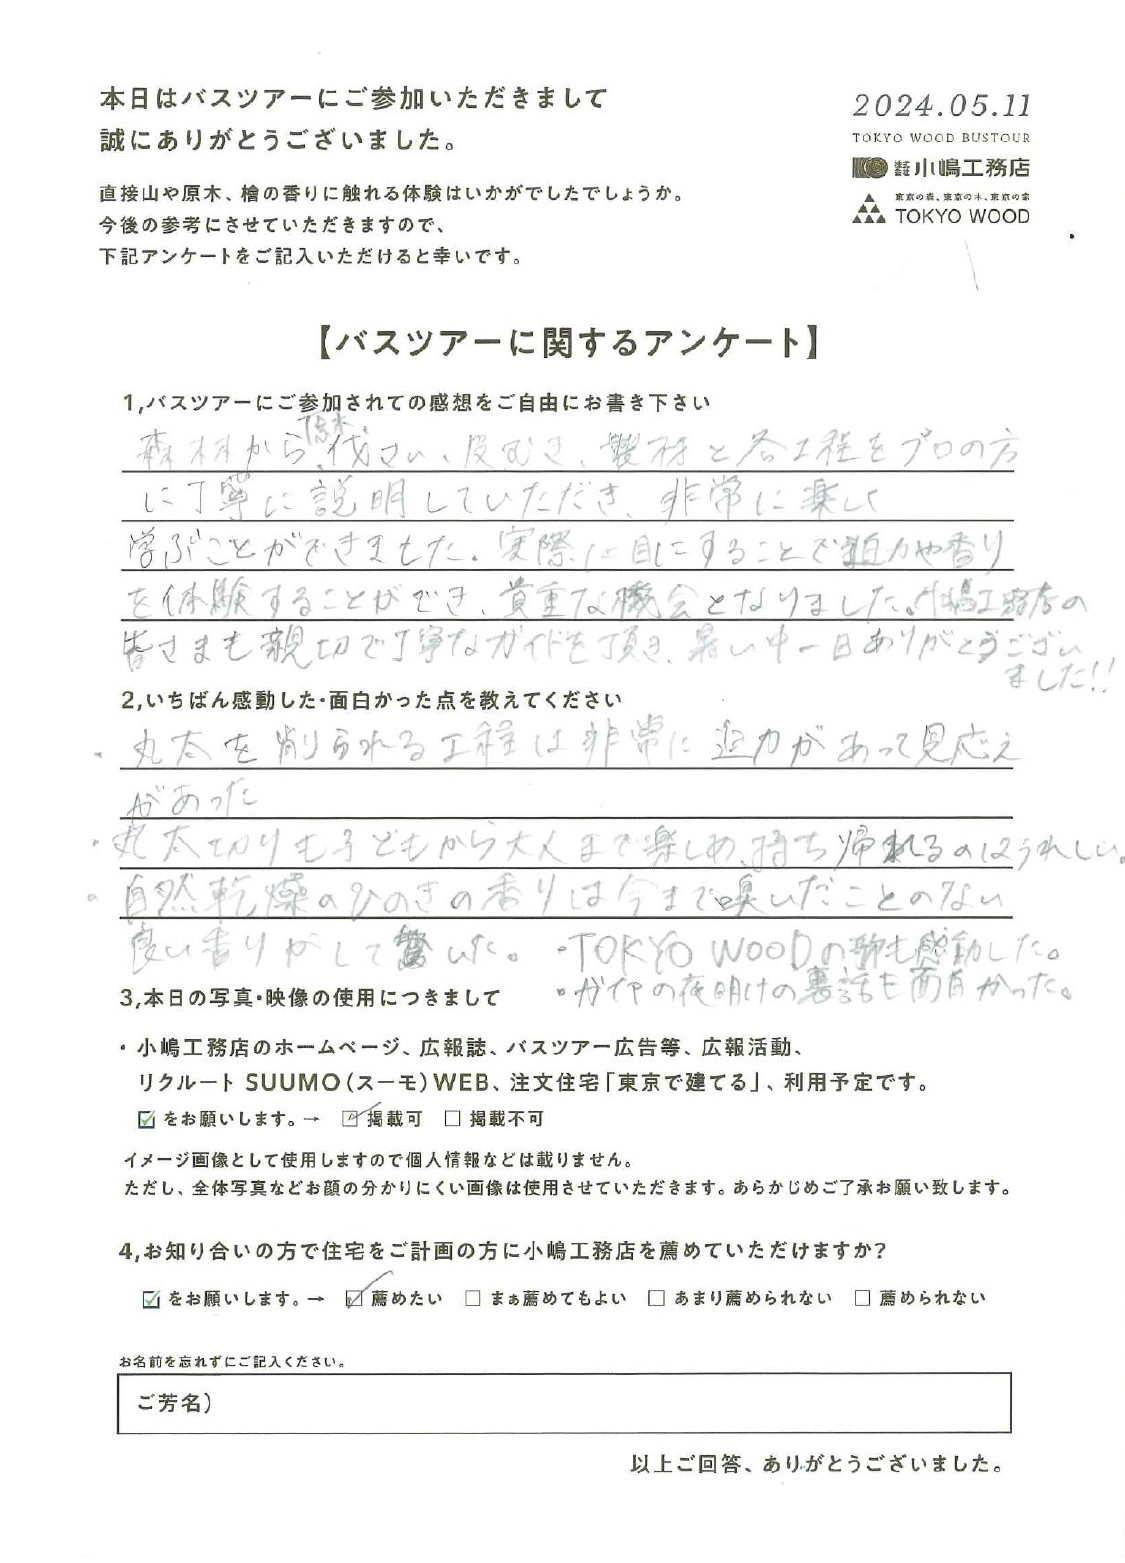 本日はバスツアーにご参加いただきまして
誠にありがとうございました。
直接山や原木、檜の香りに触れる体験はいかがでしたでしょうか。
今後の参考にさせていただきますので、
下記アンケートをご記入いただけると幸いです。
2024.05.11
TOKYO WOOD BUSTOUR
株式会社 小嶋工務店
東京の森、東京の木、東京の家
TOKYO WOOD
【バスツアーに関するアンケート】
1,バスツアーにご参加されての感想をご自由にお書き下さい
森林から、伐さい、皮むき、製材と各工程をプロの方
に丁寧に説明していただき、非常に楽しく
学ぶことができました。実際に目にすることで迫力や香り
を体験することができ、貴重な機会となりました。小嶋工務店の
皆さまも親切で丁寧なガイドを頂き、暑い中一日ありがとうござい
ました!!
2,いちばん感動した・面白かった点を教えてください
・丸太を削られる工程は非常に迫力があって見応え
があった
・丸太切りも子どもから大人まで楽しめ、持ち帰れるのはうれしい。
・自然乾燥のひのきの香りは今まで嗅いだことのない
良い香りがして驚いた。 ・TOKYO WOODの歌も感動した。
・ガイヤの夜明けの裏話も面白かった。
3,本日の写真・映像の使用につきまして
・小嶋工務店のホームページ、広報誌、バスツアー広告等、広報活動、
リクルート SUUMO（スーモ）WEB、注文住宅「東京で建てる」、利用予定です。
☑をお願いします。→ ☑掲載可 □掲載不可
イメージ画像として使用しますので個人情報などは載りません。
ただし、全体写真などお顔の分かりにくい画像は使用させていただきます。あらかじめご了承お願い致します。
4,お知り合いの方で住宅をご計画の方に小嶋工務店を薦めていただけますか?
☑をお願いします。→ ☑薦めたい □まぁ薦めてもよい □あまり薦められない □薦められない
お名前を忘れずにご記入ください。
ご芳名）
以上ご回答、ありがとうございました。